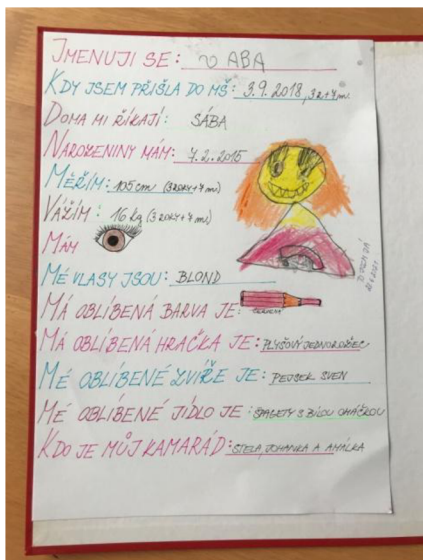 JMENUJI SE: ABA
KDY JSEM PŘIŠLA DO MŠ: 3.9.2018, 3r+7m
DOMA MI ŘÍKAJÍ: SÁBA
NAROZENINY MÁM: 7.2.2015
MĚŘÍM: 105cm (3ROKY+7m)
VÁŽÍM: 16kg (3ROKY+7m)
MÁM
MÉ VLASY JSOU: BLOND
MÁ OBLÍBENÁ BARVA JE: ČERVENÁ
MÁ OBLÍBENÁ HRAČKA JE: PLYŠOVÝ JEDNOROŽEC
MÉ OBLÍBENÉ ZVÍŘE JE: PEJSEK SVEN
MÉ OBLÍBENÉ JÍDLO JE: ŠPAGETY S BÍLOU OMÁČKOU
KDO JE MŮJ KAMARÁD: STELA, JOHANKA A AMÁLKA